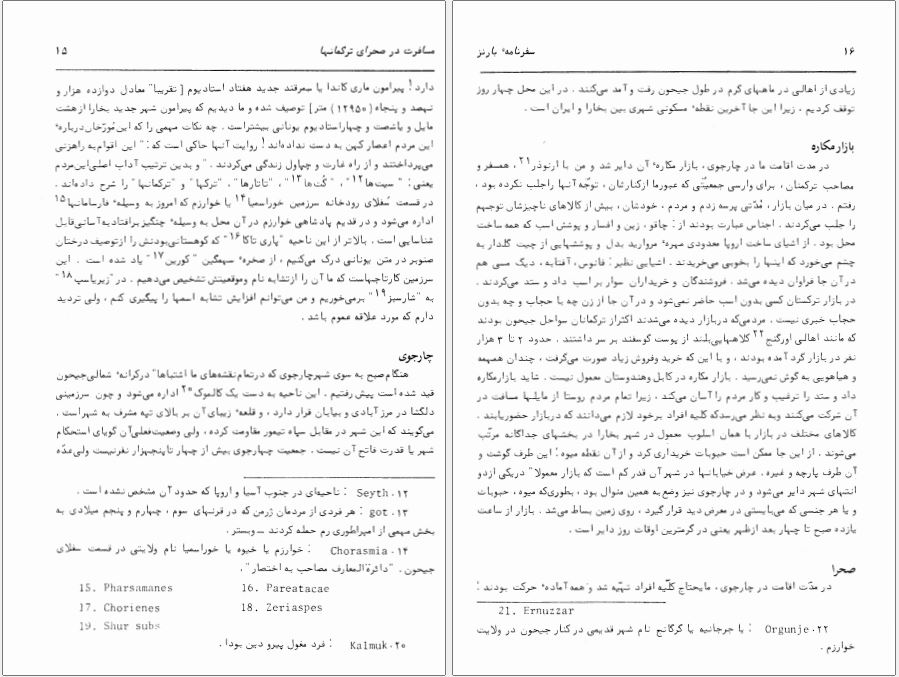 مسافرت در صحرای ترکمانها ۱۵
دارد! پیرامون ماری کاندا یا سمرقند جدید هفتاد استادیوم [تقریبا" معادل دوازده هزار و
نهصد و پنجاه (۱۲۹۵۰) متر] توصیف شده و ما دیدیم که پیرامون شهر جدید بخارا از هشت
مایل و یا شصت و چهار استادیوم یونانی بیشتر است. چه نکات مهمی را که این مورّخان دربارهٔ
این مردم اعصار کهن به دست نداده‌اند! روایت آنها حاکی است که: " این اقوام به راهزنی
می‌پرداختند و از راه غارت و چپاول زندگی می‌کردند. " و بدین ترتیب آداب اصلی این مردم
یعنی: " سیت‌ها۱۲ "، " گُت‌ها۱۳ "، "تاتارها"، "ترکها" و "ترکمانها" را شرح داده‌اند.
در قسمت سُفلای رودخانه سرزمین خوراسمیا۱۴ یا خوارزم که امروز به وسیلهٔ فارسامانها۱۵
اداره می‌شود و در قدیم پادشاهی خوارزم در آن محل به وسیلهٔ چنگیز برافتاد به آسانی قابل
شناسایی است. بالاتر از این ناحیه "پاری تاکا۱۶ " که کوهستانی بودنش را از توصیف درختان
صنوبر در متن یونانی درک می‌کنیم، از صخرهٔ سهمگین "کورین۱۷ " یاد شده است. این
سرزمین کارتاجهاست که ما آن را از تشابه نام و موقعیتش تشخیص می‌دهیم. در "زیریاسپ۱۸ "
به "شارسبز۱۹ " برمی‌خوریم و من می‌توانم افزایش تشابه اسمها را پیگیری کنم، ولی تردید
دارم که مورد علاقه عموم باشد.
چارجوی
هنگام صبح به سوی شهر چارجوی که در تمام نقشه‌های ما اشتباها" در کرانهٔ شمالی جیحون
قید شده است پیش رفتیم. این ناحیه به دست یک کالموک۲۰ اداره می‌شود و چون سرزمینی
دلگشا در مرز آبادی و بیابان قرار دارد، و قلعهٔ زیبای آن بر بالای تپه مشرف به شهر است.
می‌گویند که این شهر در مقابل سپاه تیمور مقاومت کرده، ولی وضعیت فعلی آن گویای استحکام
شهر یا قدرت فاتح آن نیست. جمعیت چهارجوی بیش از چهار تا پنج‌هزار نفر نیست ولی عدّه
۱۲. Seyth : ناحیه‌ای در جنوب آسیا و اروپا که حدود آن مشخص نشده است.
۱۳. got : هر فردی از مردمان ژرمن که در قرنهای سوم، چهارم و پنجم میلادی به
بخش مهمی از امپراطوری رم حمله کردند — وبستر.
۱۴. Chorasmia : خوارزم یا خیوه یا خوراسمیا نام ولایتی در قسمت سفلای
جیحون. "دائرةالمعارف مصاحب به اختصار".
15. Pharsamanes 16. Pareatacae
17. Chorienes 18. Zeriaspes
19. Shur subs
۲۰. Kalmuk : فرد مغول پیرو دین بودا.
۱۶ سفرنامهٔ بارنز
زیادی از اهالی در ماههای گرم در طول جیحون رفت و آمد می‌کنند. در این محل چهار روز
توقف کردیم، زیرا این جا آخرین نقطهٔ مسکونی شهری بین بخارا و ایران است.
بازار مکاره
در مدت اقامت ما در چارجوی، بازار مکارهٔ آن دایر شد و من با ارنوذر۲۱، همسفر و
مصاحب ترکمنان، برای وارسی جمعیتّی که عبور ما از کنارشان، توجّه آنها را جلب نکرده بود،
رفتم. در میان بازار، مُدّتی پرسه زدم و مردم، خودشان، بیش از کالاهای ناچیزشان توجهم
را جلب می‌کردند. اجناس عبارت بودند از: چاقو، زین و افسار و پوشش اسب که همه ساخت
محل بود. از اشیای ساخت اروپا معدودی مهرهٔ مروارید بدل و پوششهایی از چیت گلدار به
چشم می‌خورد که اینها را بخوبی می‌خریدند. اشیایی نظیر: فانوس، آفتابه، دیگ مسی هم
در آن جا فراوان دیده می‌شد. فروشندگان و خریداران سوار بر اسب داد و ستد می‌کردند.
در بازار ترکستان کسی بدون اسب حاضر نمی‌شود و در آن جا از زن چه با حجاب و چه بدون
حجاب خبری نیست. مردمی که در بازار دیده می‌شدند اکثر از ترکمانان سواحل جیحون بودند
که مانند اهالی اورگنج۲۲ کلاههایی بلند از پوست گوسفند بر سر داشتند. حدود ۲ تا ۳ هزار
نفر در بازار گرد آمده بودند، و با این که خرید و فروش زیاد صورت می‌گرفت، چندان همهمه
و هیاهویی به گوش نمی‌رسید. بازار مکاره در کابل و هندوستان معمول نیست. شاید بازار مکاره
داد و ستد را ترغیب و کار مردم را آسان می‌کند، زیرا تمام مردم روستا از مایلها مسافت در
آن شرکت می‌کنند و به نظر می‌رسد که کلیه افراد برخود لازم می‌دانند که در بازار حضور یابند.
کالاهای مختلف در بازار با همان اسلوب معمول در شهر بخارا در بخشهای جداگانه مرتّب
می‌شوند. از این جا ممکن است حبوبات خریداری کرد و از آن نقطه میوه؛ این طرف گوشت و
آن طرف پارچه و غیره. عرض خیابانها در شهر آن قدر کم است که بازار معمولا" در یکی از دو
انتهای شهر دایر می‌شود و در چارجوی نیز وضع به همین منوال بود، بطوری که میوه، حبوبات
و یا هر جنسی که می‌بایستی در معرض دید قرار گیرد، روی زمین بساط می‌شد. بازار از ساعت
یازده صبح تا چهار بعد از ظهر یعنی در گرمترین اوقات روز دایر است.
صحرا
در مدّت اقامت در چارجوی، مایحتاج کلّیه افراد تهیّه شد و همه آمادهٔ حرکت بودند؛
21. Ernuzzar
۲۲. Orgunje : یا جرجانیه یا گرگانج نام شهر قدیمی در کنار جیحون در ولایت
خوارزم.